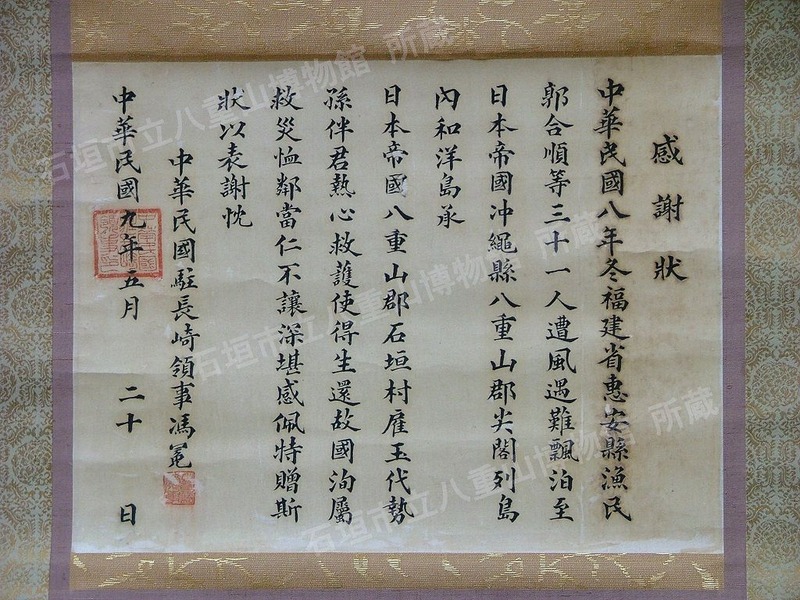 感謝狀
中華民國八年冬福建省惠安縣漁民
郭合順等三十一人遭風遇難飄泊至
日本帝國冲繩縣八重山郡尖閣列島
內和洋島承
日本帝國八重山郡石垣村雇玉代勢
孫伴君熱心救護使得生還故國洵屬
救災恤鄰當仁不讓深堪感佩特贈斯
狀以表謝忱
中華民國駐長崎領事馮冕
中華民國九年五月 二十 日
石垣市立八重山博物館 所蔵
石垣市立八重山博物館 所蔵
石垣市立八重山博物館 所蔵